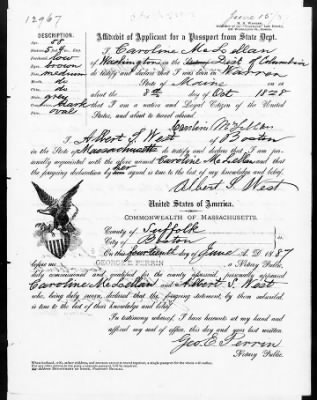 12967
June 15/87
DESCRIPTION.
Age, 58
Stature, 5-9
Forehead, low
Eyes, brown
Nose, medium
Mouth, do
Chin, do
Hair, grey
Complexion, dark
Face, oval
Affidavit of Applicant for a Passport from State Dept.
I Caroline McLellan
of Washington in the Dist of Columbia
do testify and declare that I was born in Warren
State of Maine on or about
the 8th day of Oct 1828
that I am a native and Legal Citizen of the United
States, and about to travel abroad.
Caroline McLellan
I Albert S. West of Boston
in the State of Massachusetts do testify and declare that I am per-
sonally acquainted with the above named Caroline McLellan and that
the foregoing declaration by her is true to the best of my knowledge and belief.
Albert S. West
United States of America.
COMMONWEALTH OF MASSACHUSETTS.
County of Suffolk
City of Boston
On this fourteenth day of June A. D. 1887
before me GEORGE E. PERRIN a Notary Public,
duly commissioned and qualified for the county aforesaid, personally appeared
Caroline McLellan and Albert S. West
who, being duly sworn, declared that the foregoing statement, by them subscribed,
is true to the best of their knowledge and belief.
In testimony whereof, I have hereunto set my hand and
affixed my seal of office, this day and year last written.
Geo. E. Perrin
Notary Public.